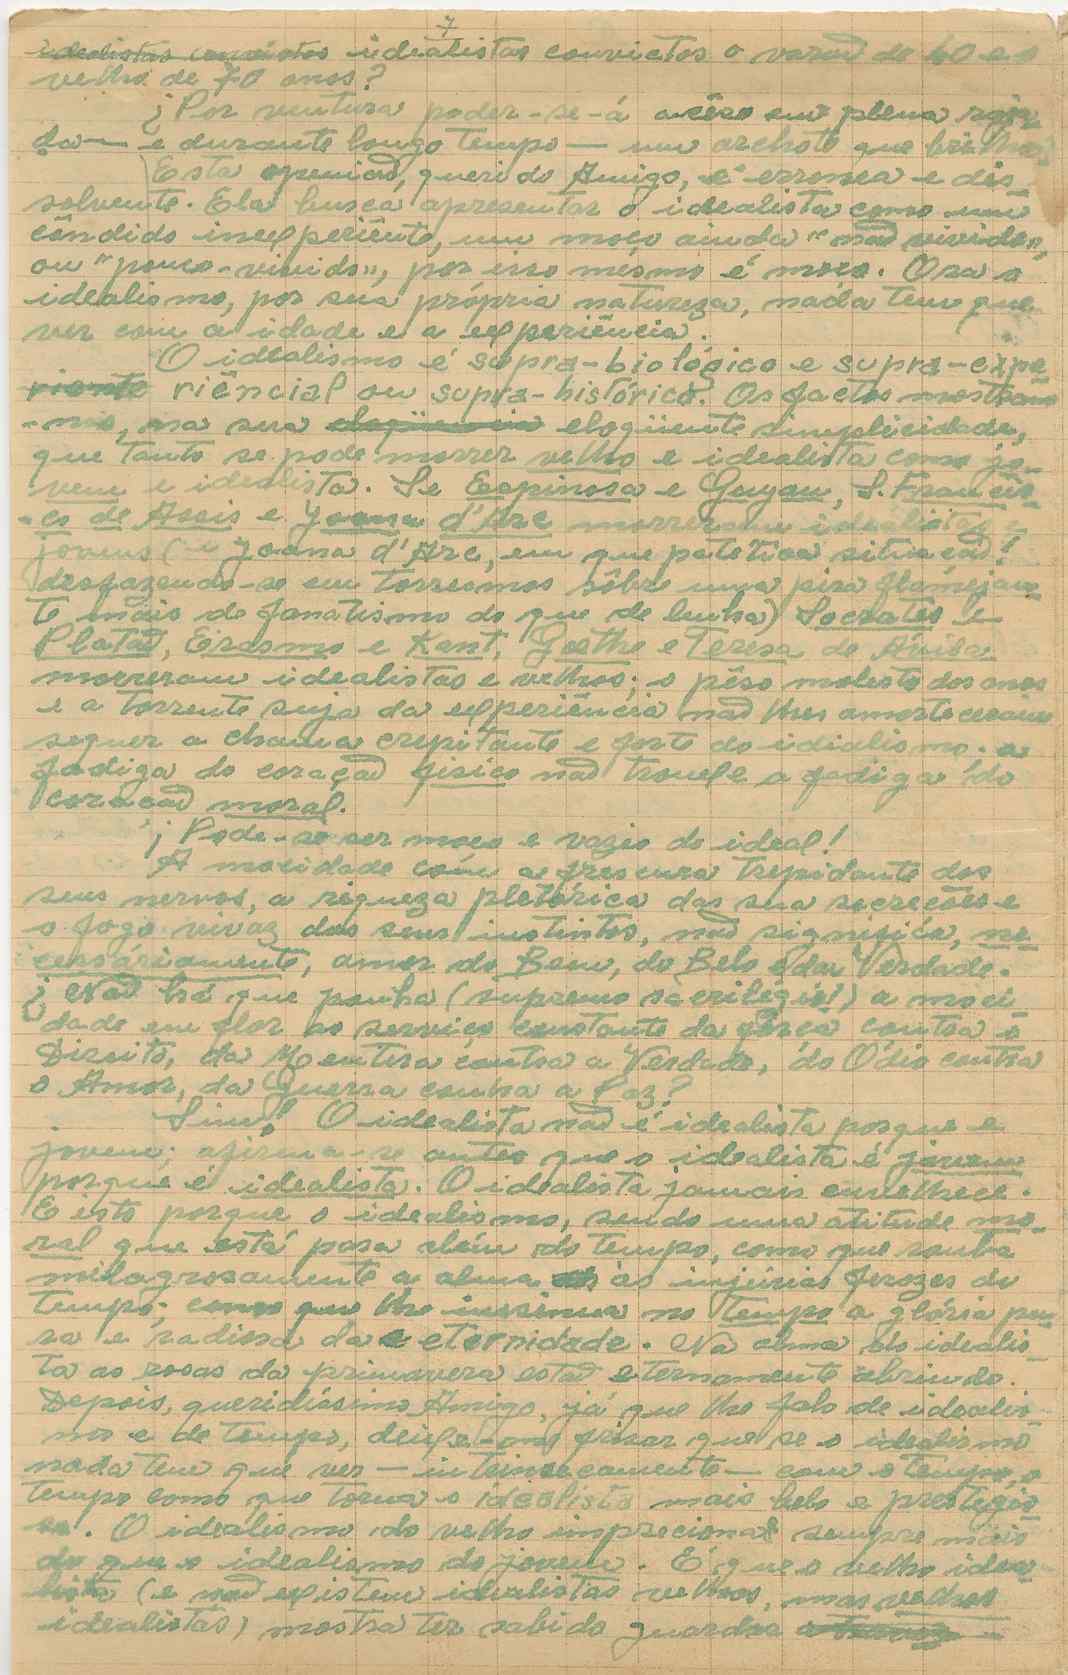 7
idealistas convictos idealistas convictos o varão de 60 e o
velho de 70 anos?
¿Por ventura poder-se-á em plena
da — e durante longo tempo — um archote que brilhas
Esta opinião, querido Amigo, é erronea e dis-
solvente. Ela busca apresentar o idealista como um
cândido inexperiênte, um moço ainda "não vivido",
ou "pouco-vivido", por isso mesmo é moço. Ora o
idealismo, por sua própria natureza, nada tem que
ver com a idade e a experiência.
O idealismo é supra-biológico e supra-expe-
riente riêncial ou supra-histórico. Os factos mostram-
-nos, na sua eloqüência eloqüente simplicidade,
que tanto se pode morrer velho e idealista como jo-
vem e idealista. Se Espinosa e Guyau, S. Francis-
-co de Assis e Joana d'Arc morreram idealistas e
jovens (e Joana d'Arc, em que patética situação!
desfazendo-se em torresmos sôbre uma pira flamejan-
te mais de fanatismo do que de lenha) Socrates e
Platão, Erasmo e Kant, Goethe e Teresa de Ávila
morreram idealistas e velhos; o pêso molesto dos anos
e a torrente suja da experiência não lhes amorteceram
sequer a chama crepitante e forte do idialismo. a
fadiga do coração físico não trouxe a fadiga do
coração moral.
¡Pode-se ser moço e vazio de ideal!
A mocidade com a frescura trepidante dos
seus nervos, a riqueza pletórica das sua secreções e
o fogo vivaz dos seus instintos, não significa, ne-
cessáriamente, amor do Bem, do Belo e da Verdade.
¿Não há que ponha (supremo sacrilégio!) a moci
dade em flor ao serviço constante da fôrça contra o
Direito, da Mentira contra a Verdade, do Ódio contra
o Amor, da Guerra contra a Paz?
Sim! O idealista não é idealista porque e
jovem; afirma-se antes que o idealista é jovem
porque é idealista. O idealista jamais envelhece.
E isto porque o idealismo, sendo uma atitude mo-
ral que está para além do tempo, como que rouba
milagrosamente a alma às injúrias ferozes do
tempo; como que lhe insinua no tempo a glória pu-
ra e radiosa da eternidade. Na alma do idealis-
ta as rosas da primavera estão eternamente abrindo.
Depois, queridíssimo Amigo, já que lhe falo de idealis-
mo e de tempo, deixe-me frisar que se o idealismo
nada tem que ver — intrinsecamente — com o tempo, o
tempo como que torna o idealista mais belo e prestigio
so. O idealismo do velho impreciona sempre mais
do que o idealismo do jovem. É que o velho idea-
lista (e não existem idealistas velhos, mas velhos
idealistas) mostra ter sabido guardar